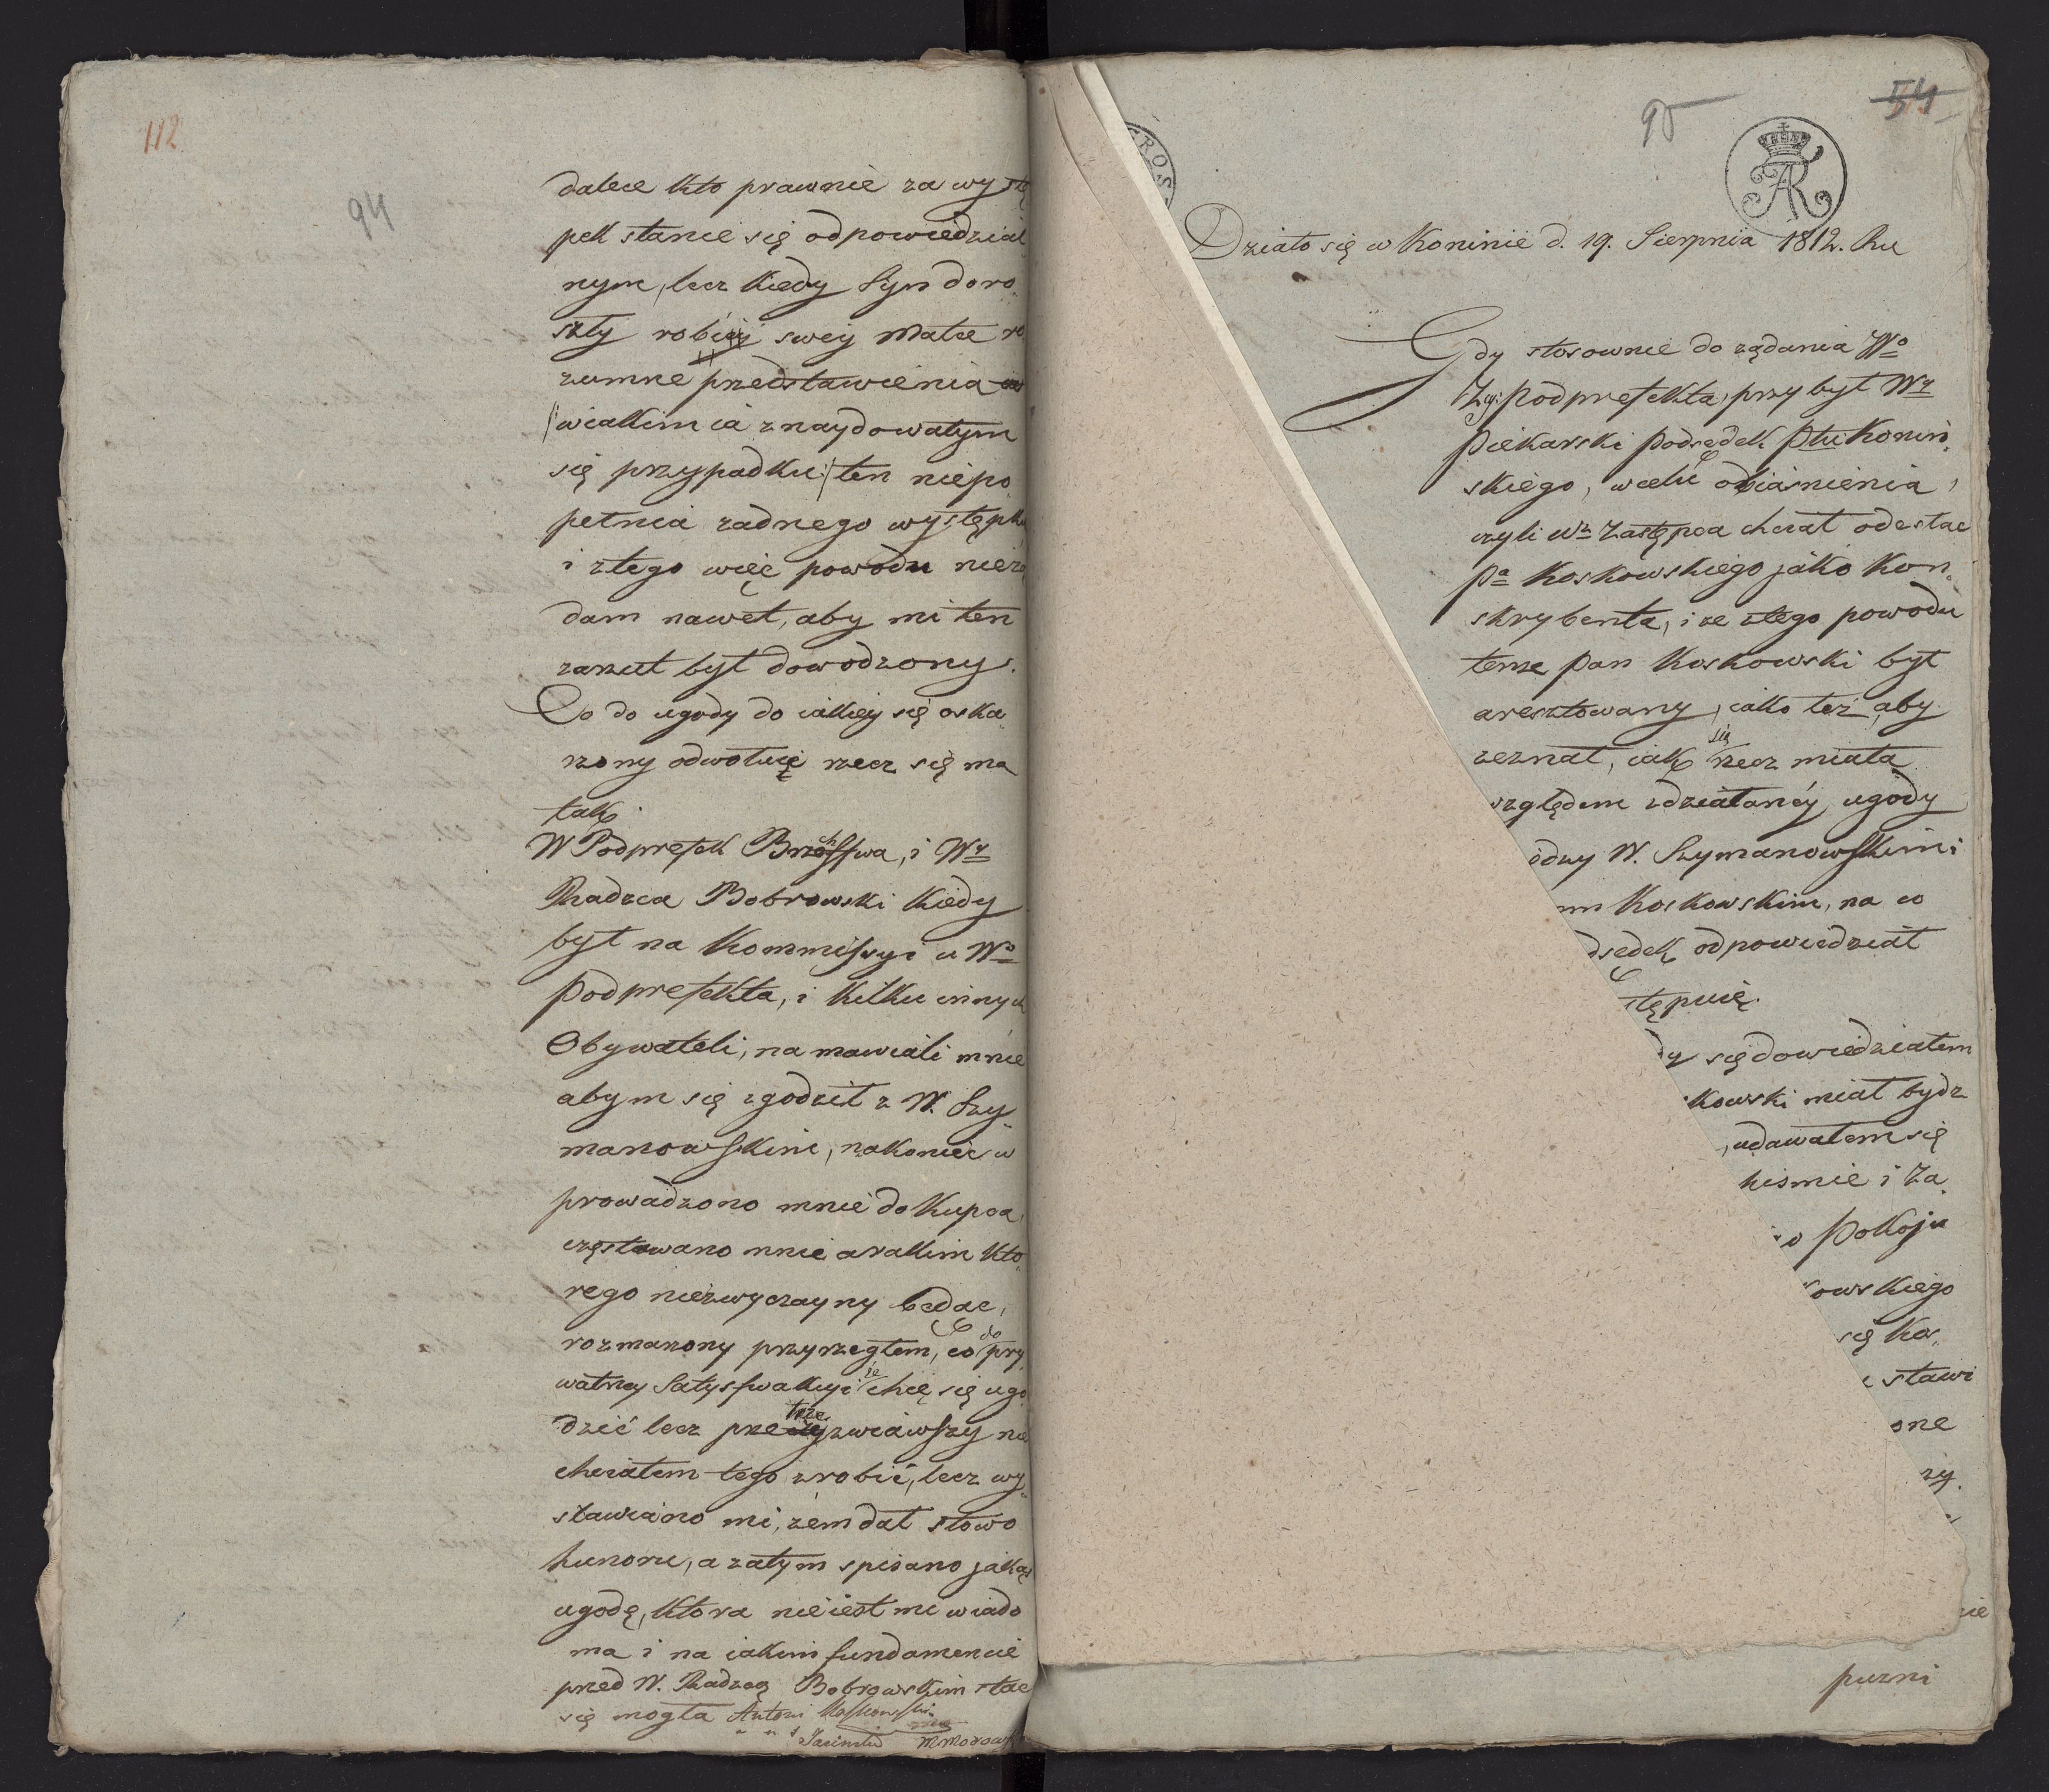 112
94
dalece kto prawnie za wystę
pek stanie się odpowiedzial
nym, lecz kiedy Syn doro
szły robi swey Matce ro
zumne przedstawienia
w iakim ia znaydowałym
się przypadku ten niepo
pełnia żadnego występku
i ztego więc powodu nieżą
dam nawet, aby mi ten
zarzut był dowodzony.
Co do ugody do iakiey się oska
rzony odwołuie rzecz się ma
tak.
W Podprefek i Wy
Radzca Bobrowski kiedy
był na Kommissyi u Wo
Podprefekta, i kilku innych
Obywateli, namawiali mnie
abym się zgodził z W. Szy
manowskim, nakoniec w
prowadzono mnie do kupca,
częstowano mnie arakiem któ
rego niezwyczayny będąc,
rozmarzony przyrzegłem, co do pry
watney Satysfwakcyi że chcę się ugo
dzić lecz wytrzeźwiawszy nie
chciałem tego zrobić, lecz wy
stawiano mi, żem dał słowo
hunoru, a zatym spisano jakąś
ugodę, ktora nieiest mi wiado
ma i na iakim fundamencie
przed W. Radzcą Bobrowskim stać
się mogła Antoni Koskowski
54
95
AR
CROS
Działo się w Koninie d. 19. Sierpnia 1812. Ru
Gdy stosownie do rządania Wo
Zgo Podprefekta, przybył Wy
Piekarski Podsędek Ptu Konin
skiego, w celu obiaśnienia,
czyli Wy Zastępca chciał odesłać
Pa Koskowskiego jako Kon
skrybenta, i że ztego powodu
tenże Pan Koskowski był
aresztowany, iako też aby
zeznał, iak się rzecz miała
względem zdziałanéy ugody
ędzy W. Szymanowskim i
em Koskowskim, na co
dsędek odpowiedział
stępuię.
dy się dowiedziałem
kowski miał bydz
, udawałem się
hismie i Za
o Pokoju
owskiego
się Kos
stawi
one
zy.
ie
puzni